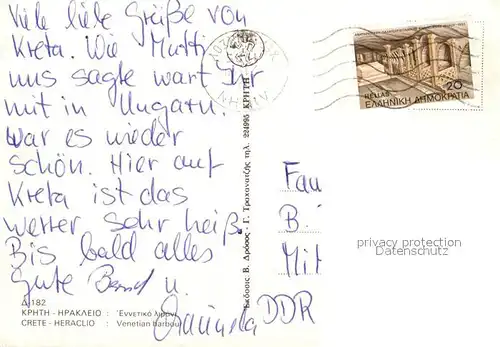 Viele liebe Grüße von
Kreta. Wie Mutti
uns sagte wart Ihr
mit in Ungarn.
War es wieder
schön. Hier auf
Kreta ist das
Wetter sehr heiß.
Bis bald alles
Gute Bernd u.
Δ-182
ΚΡΗΤΗ - ΗΡΑΚΛΕΙΟ : Ἐνετικό λιμάνι
CRETE - HERACLIO : Venetian harbour
Ἐκδοσις Β. Δρόσος - Γ. Τραχανατζῆς τηλ. 224995 ΚΡΗΤΗ
20
HELLAS
ΕΛΛΗΝΙΚΗ ΔΗΜΟΚΡΑΤΙΑ
Fau
B.
Mit
DDR
privacy protection
Datenschutz